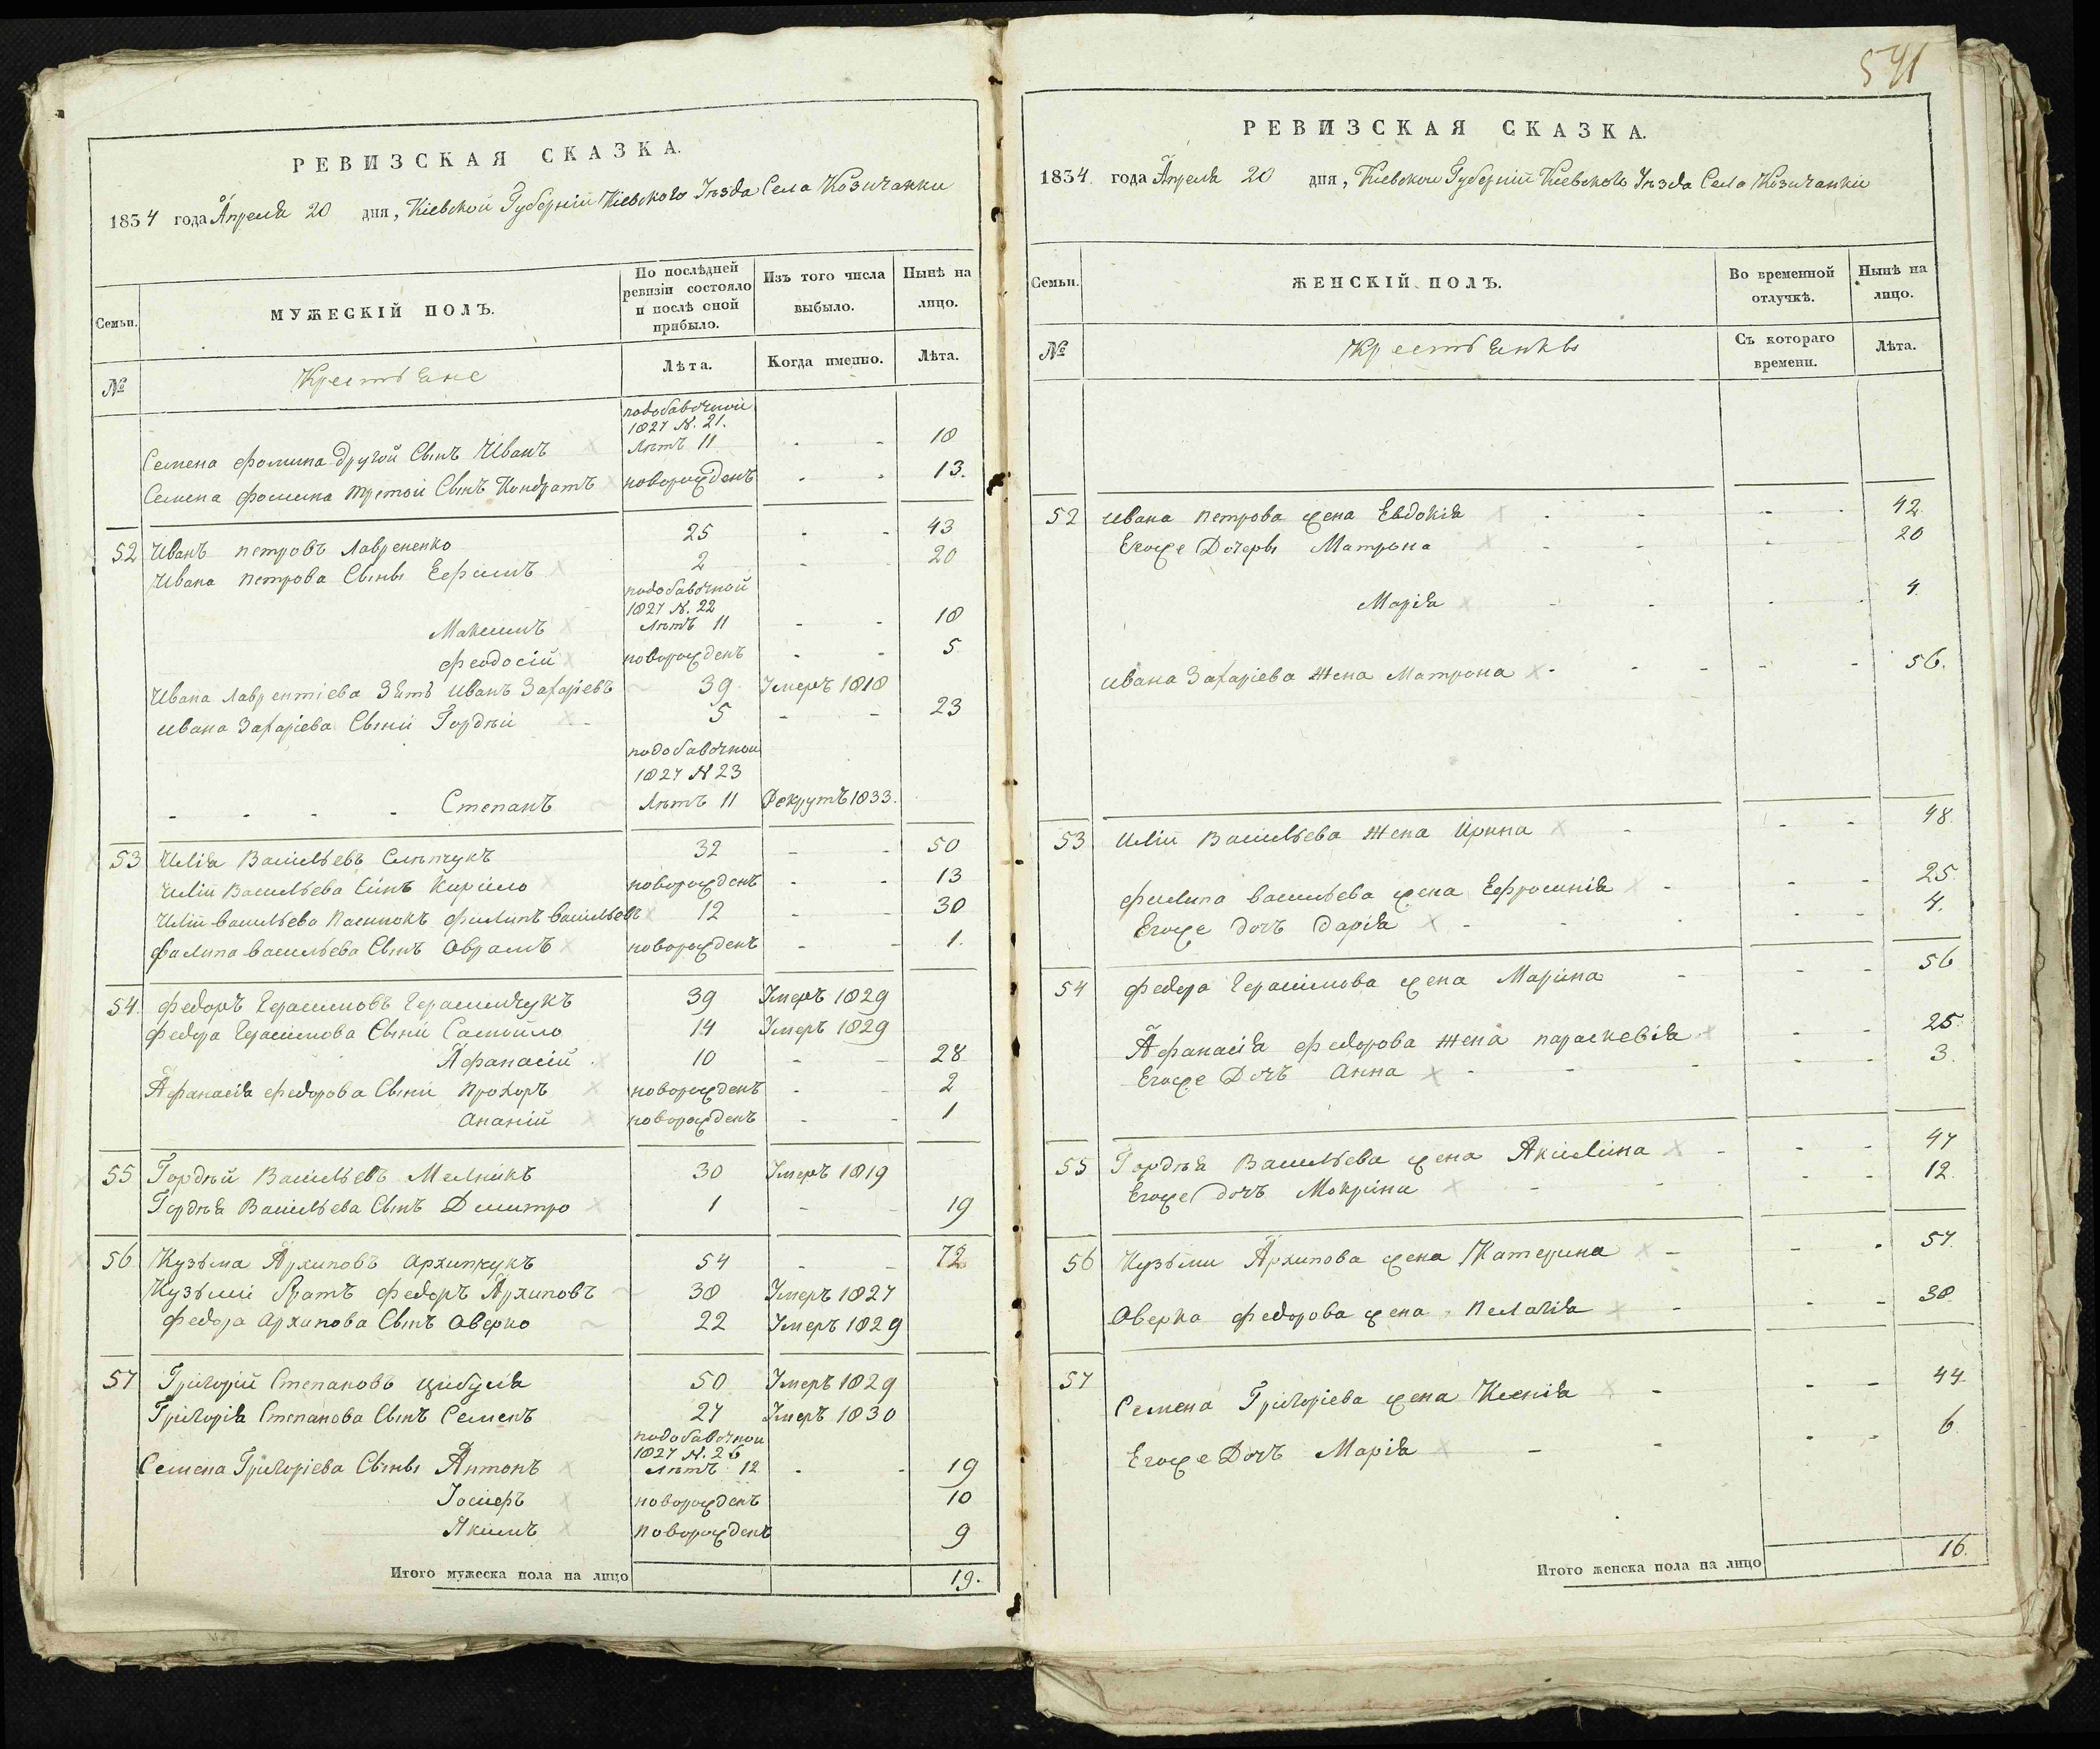 РЕВИЗСКАЯ СКАЗКА.
1834 года Апреля 20 дня, Кіевской Губерніи Кіевского Уѣзда Села Козичанки
Семьи. МУЖЕСКІЙ ПОЛЪ. По послѣдней ревизіи состояло и послѣ оной прибыло. Изъ того числа выбыло. Нынѣ на лицо.
№ Крестьяне Лѣта. Когда именно. Лѣта.
подобавочной
1827 N. 21.
Семена Фомина другой Сынъ Иванъ Лѣтъ 11 - - 18
Семена Фомина третой Сынъ Кондратъ новорожденъ - - 13.
52 Иванъ Петровъ Лаврененко 25 - - 43
Ивана Петрова Сыны Ефимъ 2 - - 20
подобавочной
1827 N. 22
Максимъ Лѣтъ 11 - - 18
Феодосій новорожденъ - - 5
Ивана Лаврентіева Зять Иванъ Захаріевъ 39 Умеръ 1818
Ивана Захаріева Сыни Гордѣй - 5 - - 23
подобавочной
1827 N 23
- - - - Степанъ Лѣтъ 11 Рекрутъ 1833.
53 Илія Васильевъ Слѣпчукъ 32 - - 50
Иліи Васильева Синъ Кирило новорожденъ - - 13
Иліи Васильева Пасинокъ Филипъ Васильевъ 12 - - 30
Филипа Васильева Сынъ Аврамъ новорожденъ - - 1.
54 Федоръ Герасимовъ Герасимчукъ 39 Умеръ 1829
Федора Герасимова Сыни Самойло 14 Умеръ 1829
Афанасій 10 - - 28
Афанасія Федорова Сыни Прохоръ новорожденъ - 2
Ананій новорожденъ - - 1
55 Гордѣй Васильевъ Мелникъ 30 Умеръ 1819
Гордѣя Васильева Сынъ Дмитро 1 - - 19
56 Кузьма Архиповъ Архипчукъ 54 - - 72
Кузьмы Братъ Федоръ Архиповъ 38 Умеръ 1827
Федора Архипова Сынъ Аверко 22 Умеръ 1829
57 Григорій Степановъ Цибуля 50 Умеръ 1829
Григорія Степанова Сынъ Семенъ 27 Умеръ 1830
подобавочной
1827 N. 26
Семена Григоріева Сыны Антонъ Лѣтъ 12 - - 19
Іосифъ новорожденъ 10
Якимъ Новорожденъ 9
Итого мужеска пола на лицо 19.
541
РЕВИЗСКАЯ СКАЗКА.
1834 года Апреля 20 дня, Кіевской Губерніи Кіевского Уѣзда Села Козичанки
Семьи. ЖЕНСКІЙ ПОЛЪ. Во временной отлучкѣ. Нынѣ на лицо.
№ Крестьянкы Съ котораго времени. Лѣта.
52 Ивана Петрова жена Евдокія - - - - 42
Егоже Дочеры Матрона - - - 20
Марія - - - - 4.
Ивана Захаріева Жена Матрона - - - - - 56.
53 Иліи Васильева Жена Ирина - - - 48
Филипа Васильева жена Ефросинія - - - 25
Егоже дочъ Дарія - - - - - 4.
54 Федора Герасимова жена Марина - - - 56
Афанасія Федорова Жена Параскевія - - 25
Егоже Дочъ Анна - - - - - 3
55 Гордѣя Васильева жена Акилина - - - 47
Егоже дочъ Мокрина - - - - 12
56 Кузьми Архипова жена Катерина - - - 57.
Аверка Федорова жена Пелагія - - - 30
57 Семена Григоріева жена Ксенія - - - 44
Егоже Дочъ Марія - - - - 6
Итого женска пола на лицо 16.